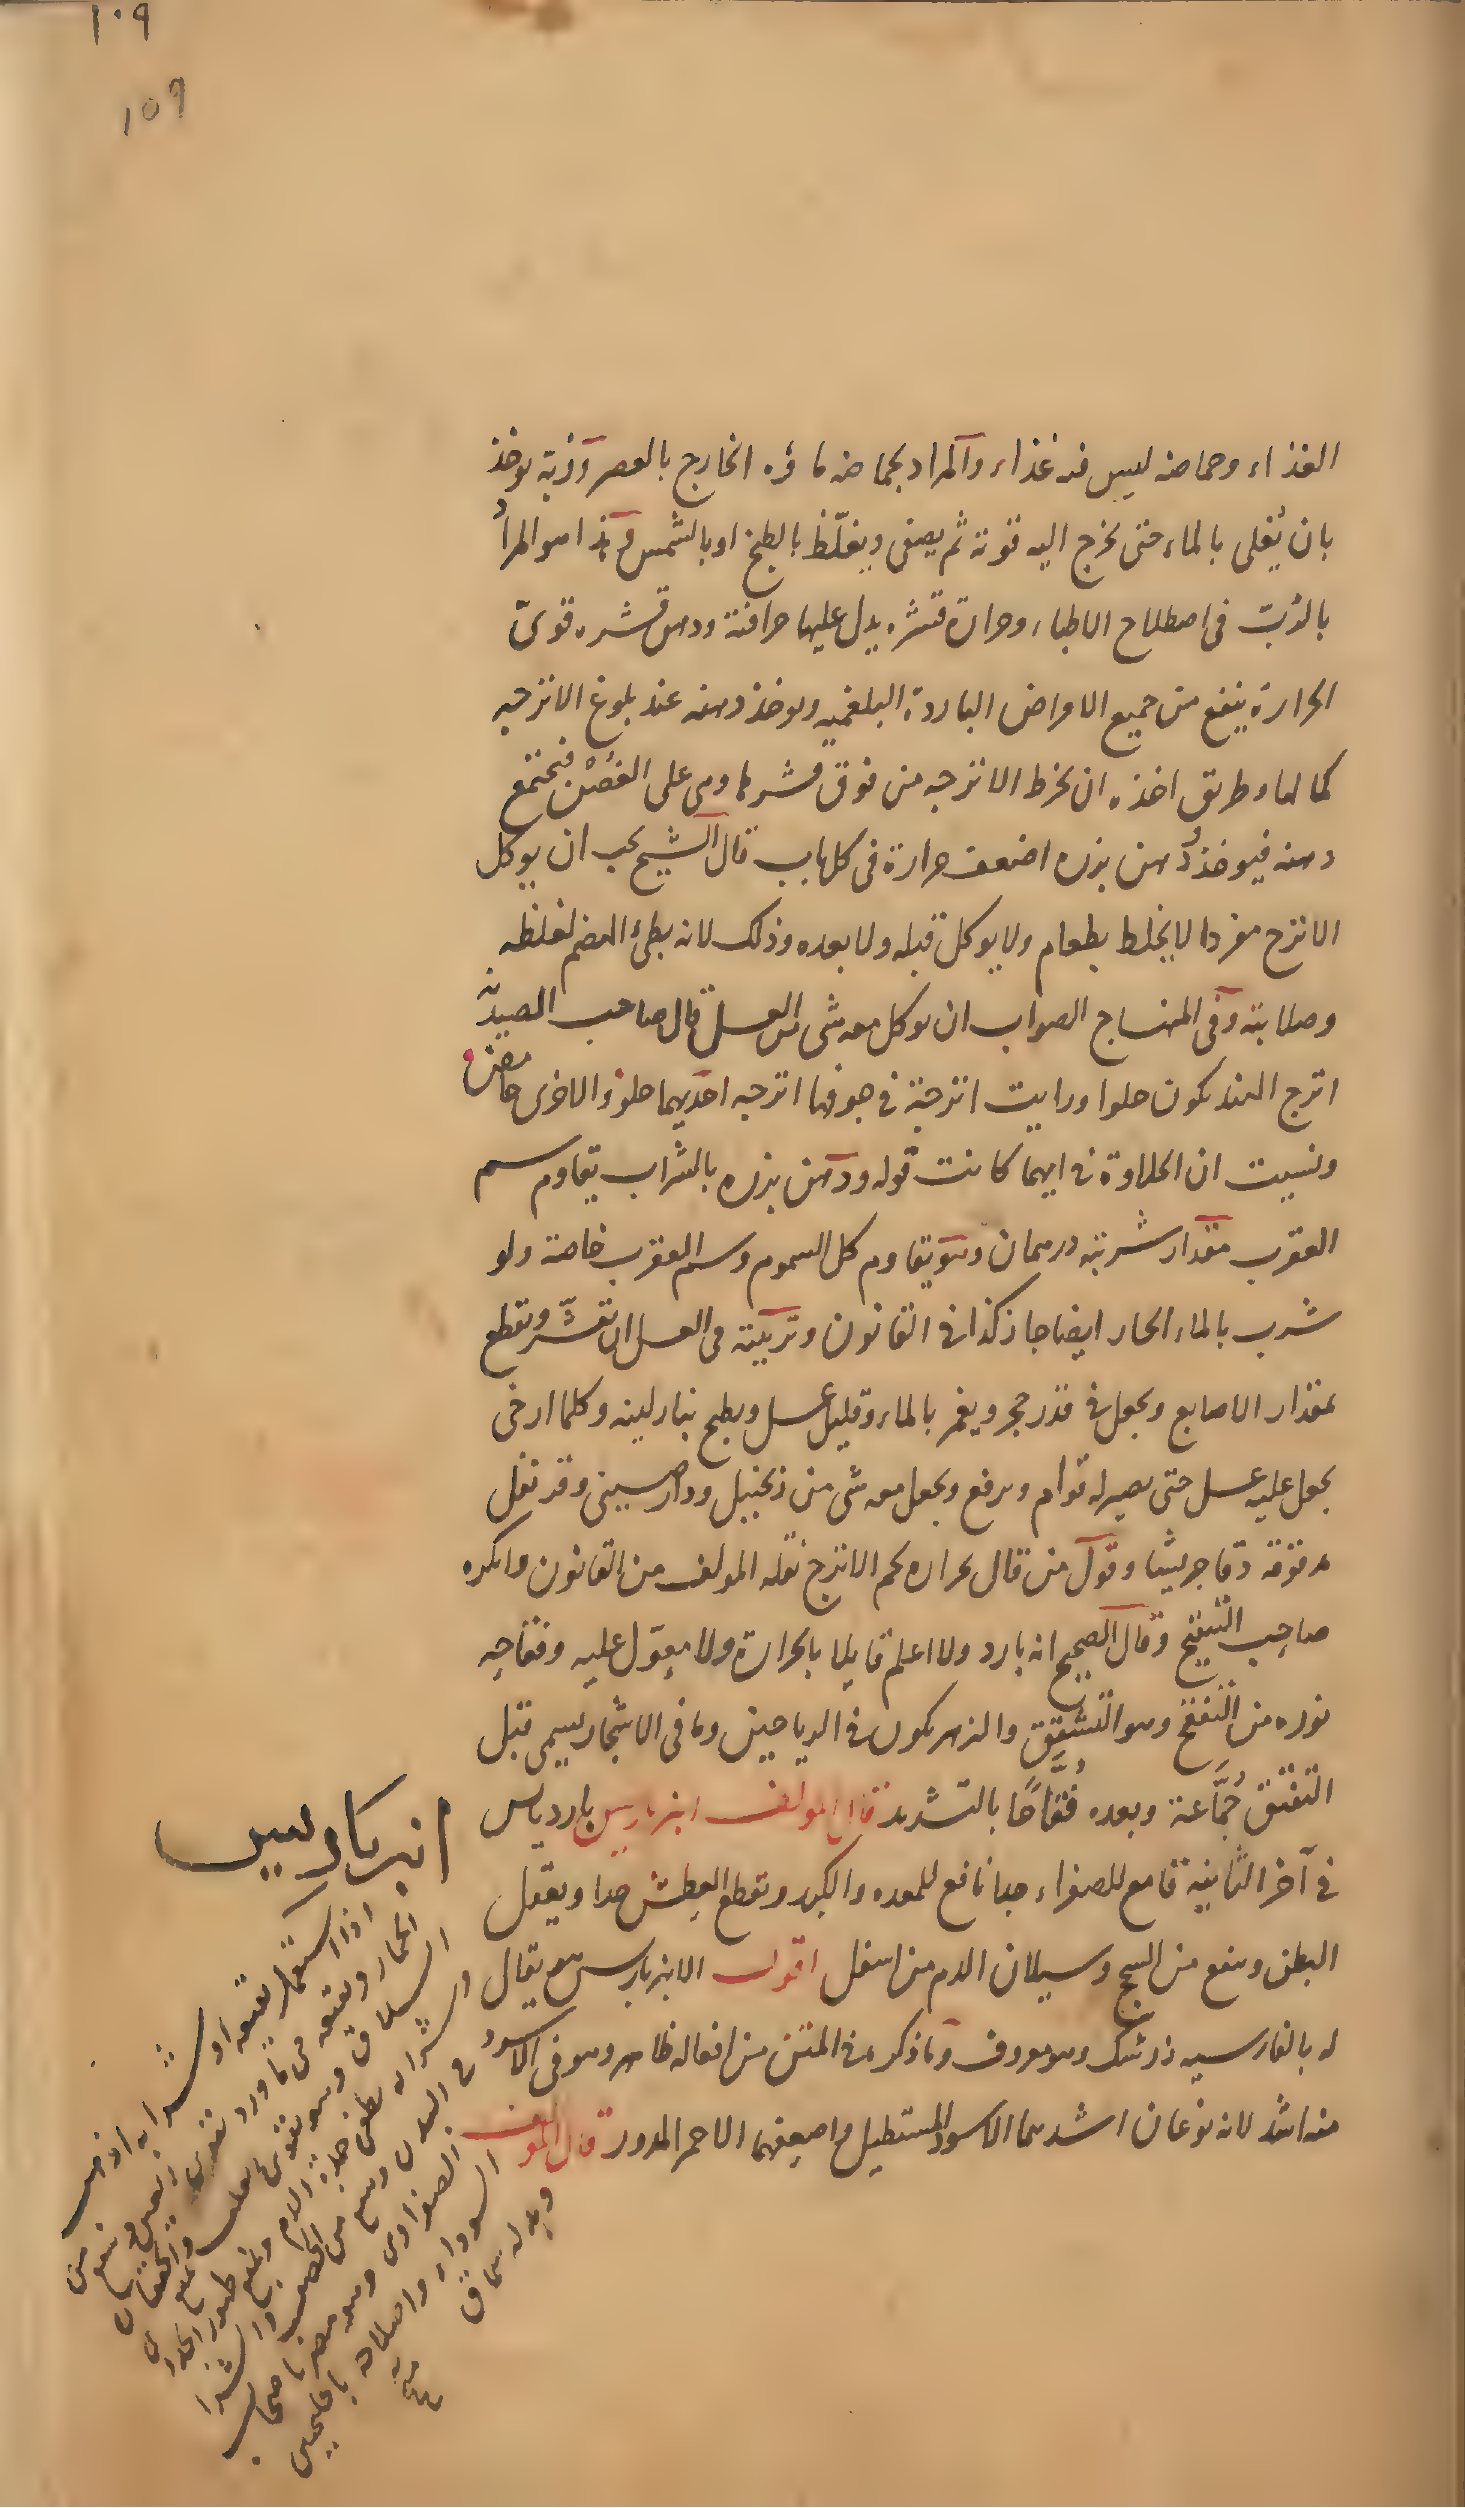 ١٠٩
١٠٩
الغذاء وحماضه ليس فيه غذاء والمراد بحماضه ماؤه الخارج بالعصر وربه يوخذ
بان يُغلى بالماء حتى يخرج اليه قوته ثم يصفى ويغلّظ بالطبخ او بالشمس هذا هو المراد
بالرُبّ فى اصطلاح الاطباء وحرارة قشره يدل عليها حرافته ودهن قشره قوىّ
الحرارة ينفع من جميع الامراض الباردة البلغميه ويوخذ دهنه عند بلوغ الاترجه
كمالها وطريق اخذه ان يخرط الاترجه من فوق قشرها وهى على الغُصْن فيجتمع
دهنه فيوخذ دُهن بزره اضعف حرارة فى كل باب قال الشيخ يجب ان يوكل
الاترج مفردا لا يخلط بطعام ولا يوكل قبله ولا بعده وذلك لانه بطئ الهضم لغلظه
وصلابته وفى المنهاج الصواب ان يوكل معه شى من العسل قال صاحب الصيدنه
اترج الهند يكون حلوا ورايت اترجة فى جوفها اترجه احديهما حلو والاخرى حامض
ونسيت ان الحلاوة فى ايهما كانت قوله ودهن بزره بالشراب يقاوم سم
العقرب مقدار شربته درهمان وهو يقاوم كل السموم وسم العقرب خاصة ولو
شرب بالماء الحار ايضا جاز كذا فى القانون وتربيته فى العسل ان تقشّر وتقطع
بمقدار الاصابع ويجعل فى قدر حجر ويغمر بالماء وقليل عسل ويطبخ بنار لينه وكلما ارخى
يجعل عليه عسل حتى يصير له قوام ويرفع ويجعل معه شى من زنجبيل ودارصينى وقرنفل
مدقوقة دقا جريشا وقول من قال بحراره لحم الاترج نقله المولف من القانون وانكره
صاحب التنقيح وقال الصحيح انه بارد ولا اعلم قايلا بالحرارة ولا معوّل عليه وفقاحه
نوره من التفقح وهو التشقق والزهر يكون فى الرياحين وما فى الاشجار يسمى قبل
التفتق جُمَّاعة وبعده فُقَّاحًا بالتشديد قال المولف انبرباريس بارد يابس
فى آخر الثانيه قامع للصفراء جدا نافع للمعده والكبد ويقطع العطش جدا ويعقل
البطن وينفع من السحج وسيلان الدم من اسفل اقول الانبرباريس هو يقال
له بالفارسيه زرشك وهو معروف وما ذكر فى المتن من افعاله ظاهر وهو فى الاسود
منه اشد لانه نوعان اشدهما الاسود المستطيل واضعفهما الاحمر المدور قال المولف
انبرباريس
اذا استعمل نقيعه او شرابه اذهب
الخمار ونقيعه فى ماورد يقوى
السلاق وهو يقوى القلب
السوداء واصلاحه
وبدله سماق